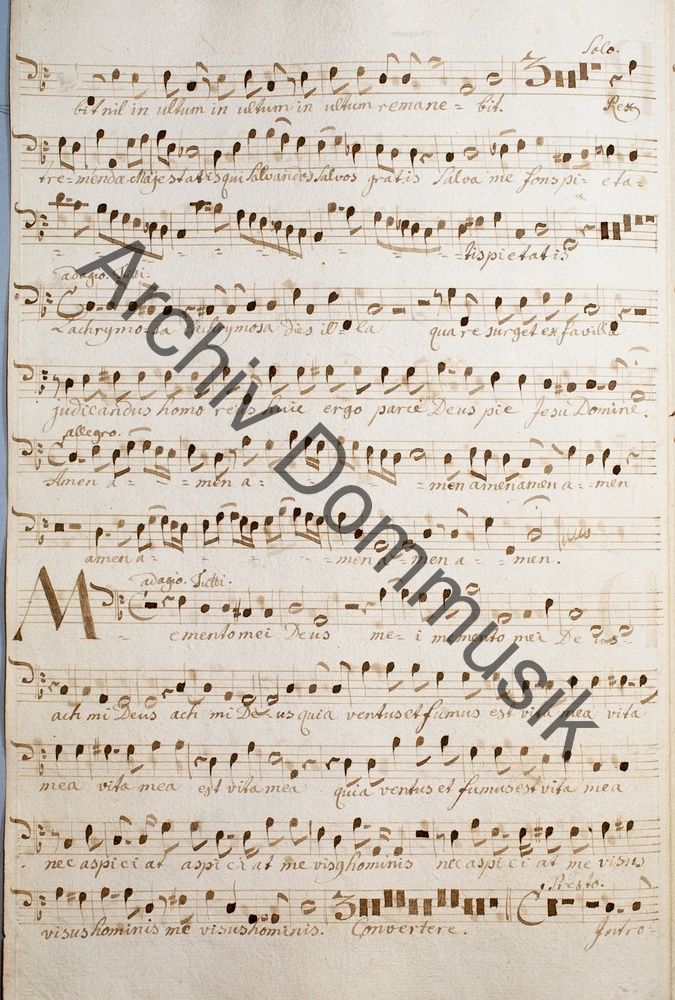 Solo.
bit nil in ultum in ultum in ultum remane = bit. Rex
tre- mendæ Majestatis qui Salvandos Salvos gratis Salva me fons pi- eta-
- - = = = = = = tis pietatis
adagio. Tutti.
Lachrymosa Lachrymosa dies il- la qua re surget ex favilla
judicandus homo reus huic ergo parce Deus pie Jesu Domine.
allegro.
Amen a- - men a- - - men amen amen a- - men
amen a- - - - men a- men a - men.
adagio. Tutti.
M ementomei Deus me- i memento mei De us-
ach mi Deus ach mi De- us quia ventus et fumus est vita mea vita
mea vita mea est vita mea quia ventus et fumus est vita mea
nec aspiciat aspiciat me visus hominis nec aspiciat me visus
Presto.
visus hominis me visus hominis. Convertere. Intro-
Archiv Dommusik